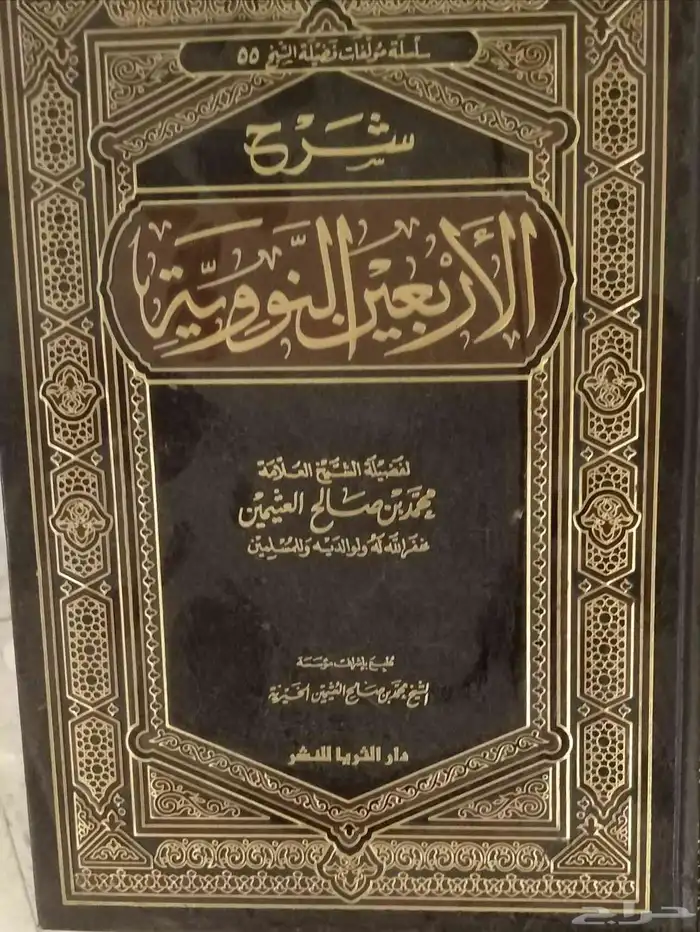 سلسلة مؤلفات فضيلة الشيخ ٥٥
شرح
الأربعين النووية
لفضيلة الشيخ العلامة
محمد بن صالح العثيمين
غفر الله له ولوالديه وللمسلمين
طبع بإشراف مؤسسة
الشيخ محمد بن صالح العثيمين الخيرية
دار الثريا للنشر
حراج